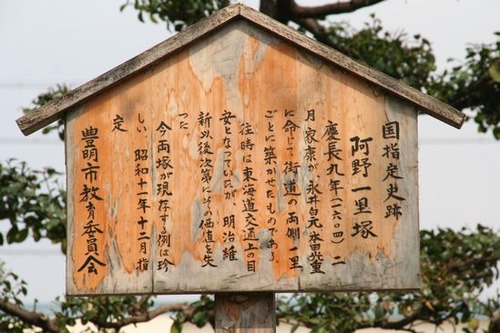 国指定史跡
阿野一里塚
慶長九年(一六〇四)二
月家康が、永井白元、本田光重
に命じて街道の両側一里
ごとに築かせたものである
往時は東海道交通上の目
安となっていたが、明治維
新以後次第にその価値を失
った
今両塚が現存する例は珍
しい、昭和十一年十二月指
定
豊明市教育委員会